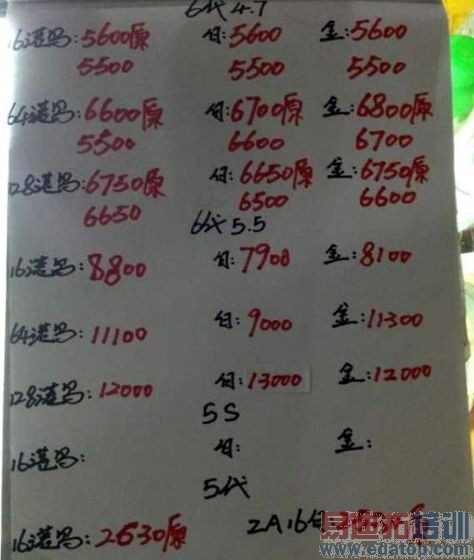 6代4.7
16港黑:5600原 白:5600 金:5600
5500 5500 5500
64港黑:6600原 白:6700原 金:6800原
5500 6600 6700
128港黑:6750原 白:6650原 金:6750原
6650 6500 6600
6代5.5
16港黑:8800 白:7900 金:8100
64港黑:11100 白:9000 金:11300
128港黑:12000 白:13000 金:12000
5S
16港黑: 白: 金:
5代
16港黑:2630原 2A16白
易迪拓培训
www.edatop.com